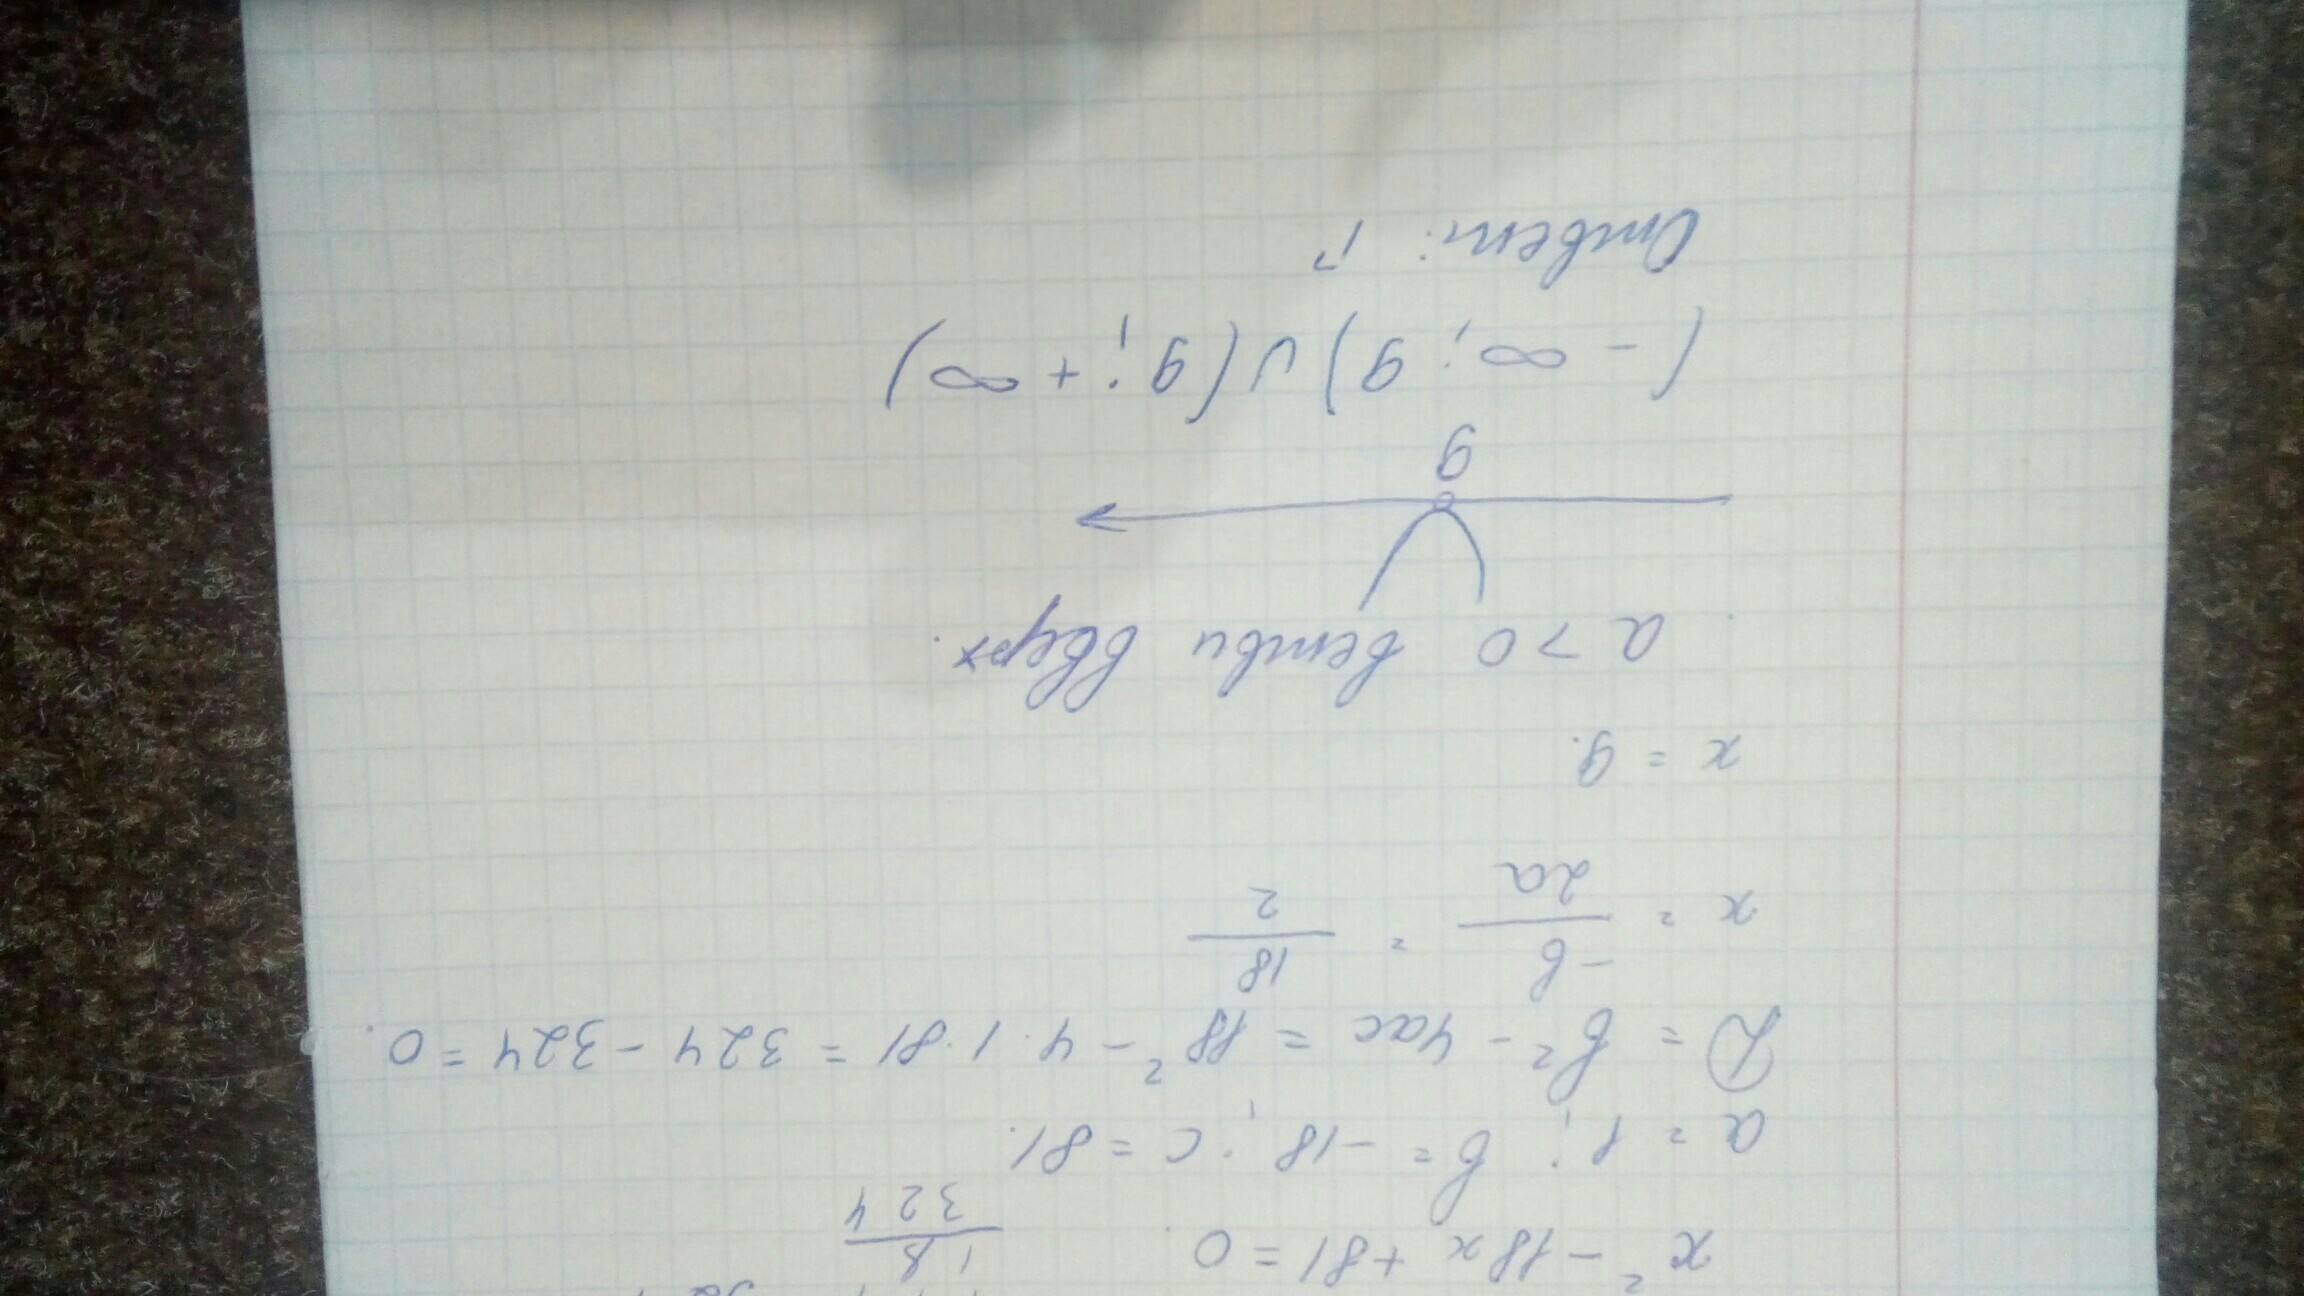 x² - 18x + 81 = 0
18
324
a = 1; b = -18; c = 81.
D = b² - 4ac = 18² - 4·1·81 = 324 - 324 = 0.
x = -b/2a = 18/2
x = 9.
a > 0 ветви вверх.
9
(-∞; 9) ∪ (9; +∞)
Ответ: г